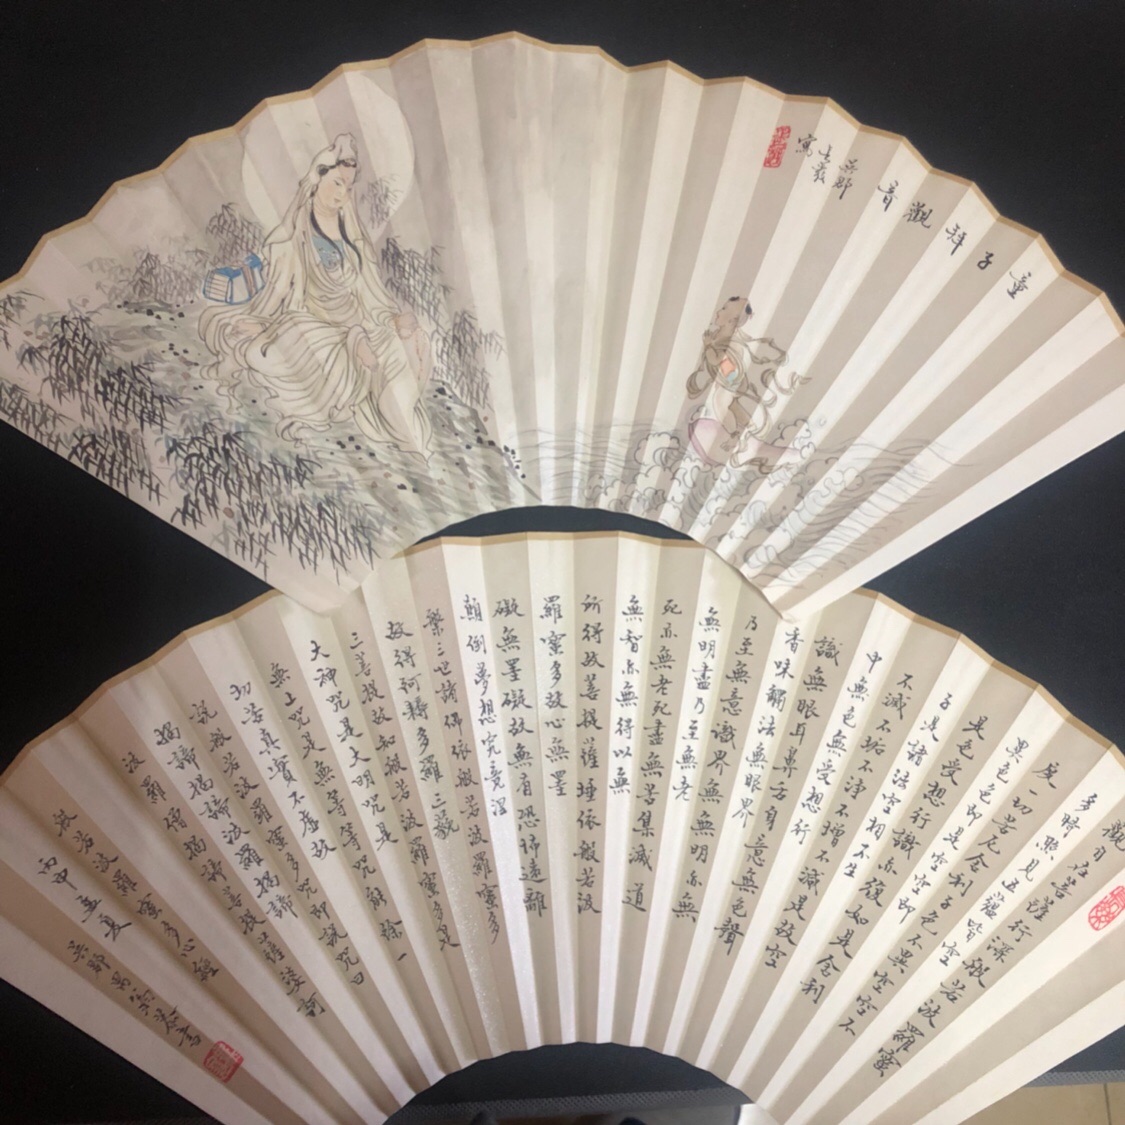 童子拜觀音
吳郡
寫
觀自在菩薩行深般若波羅蜜
多時照見五蘊皆空
度一切苦厄舍利子色不異空空不
異色色即是空空即
是色受想行識亦復如是舍利
子是諸法空相不生
不滅不垢不淨不增不減是故空
中無色無受想行
識無眼耳鼻舌身意無色聲
香味觸法無眼界
乃至無意識界無無明亦無
無明盡乃至無老
死亦無老死盡無苦集滅道
無智亦無得以無
所得故菩提薩埵依般若波
羅蜜多故心無罣
礙無罣礙故無有恐怖遠離
顛倒夢想究竟涅
槃三世諸佛依般若波羅蜜多
故得阿耨多羅三藐
三菩提故知般若波羅蜜多是
大神咒是大明咒是
無上咒是無等等咒能除一
切苦真實不虛故
說般若波羅蜜多咒即說咒曰
揭諦揭諦波羅揭諦
波羅僧揭諦菩提薩婆訶
般若波羅蜜多心經
丙申孟夏
吳郡 書